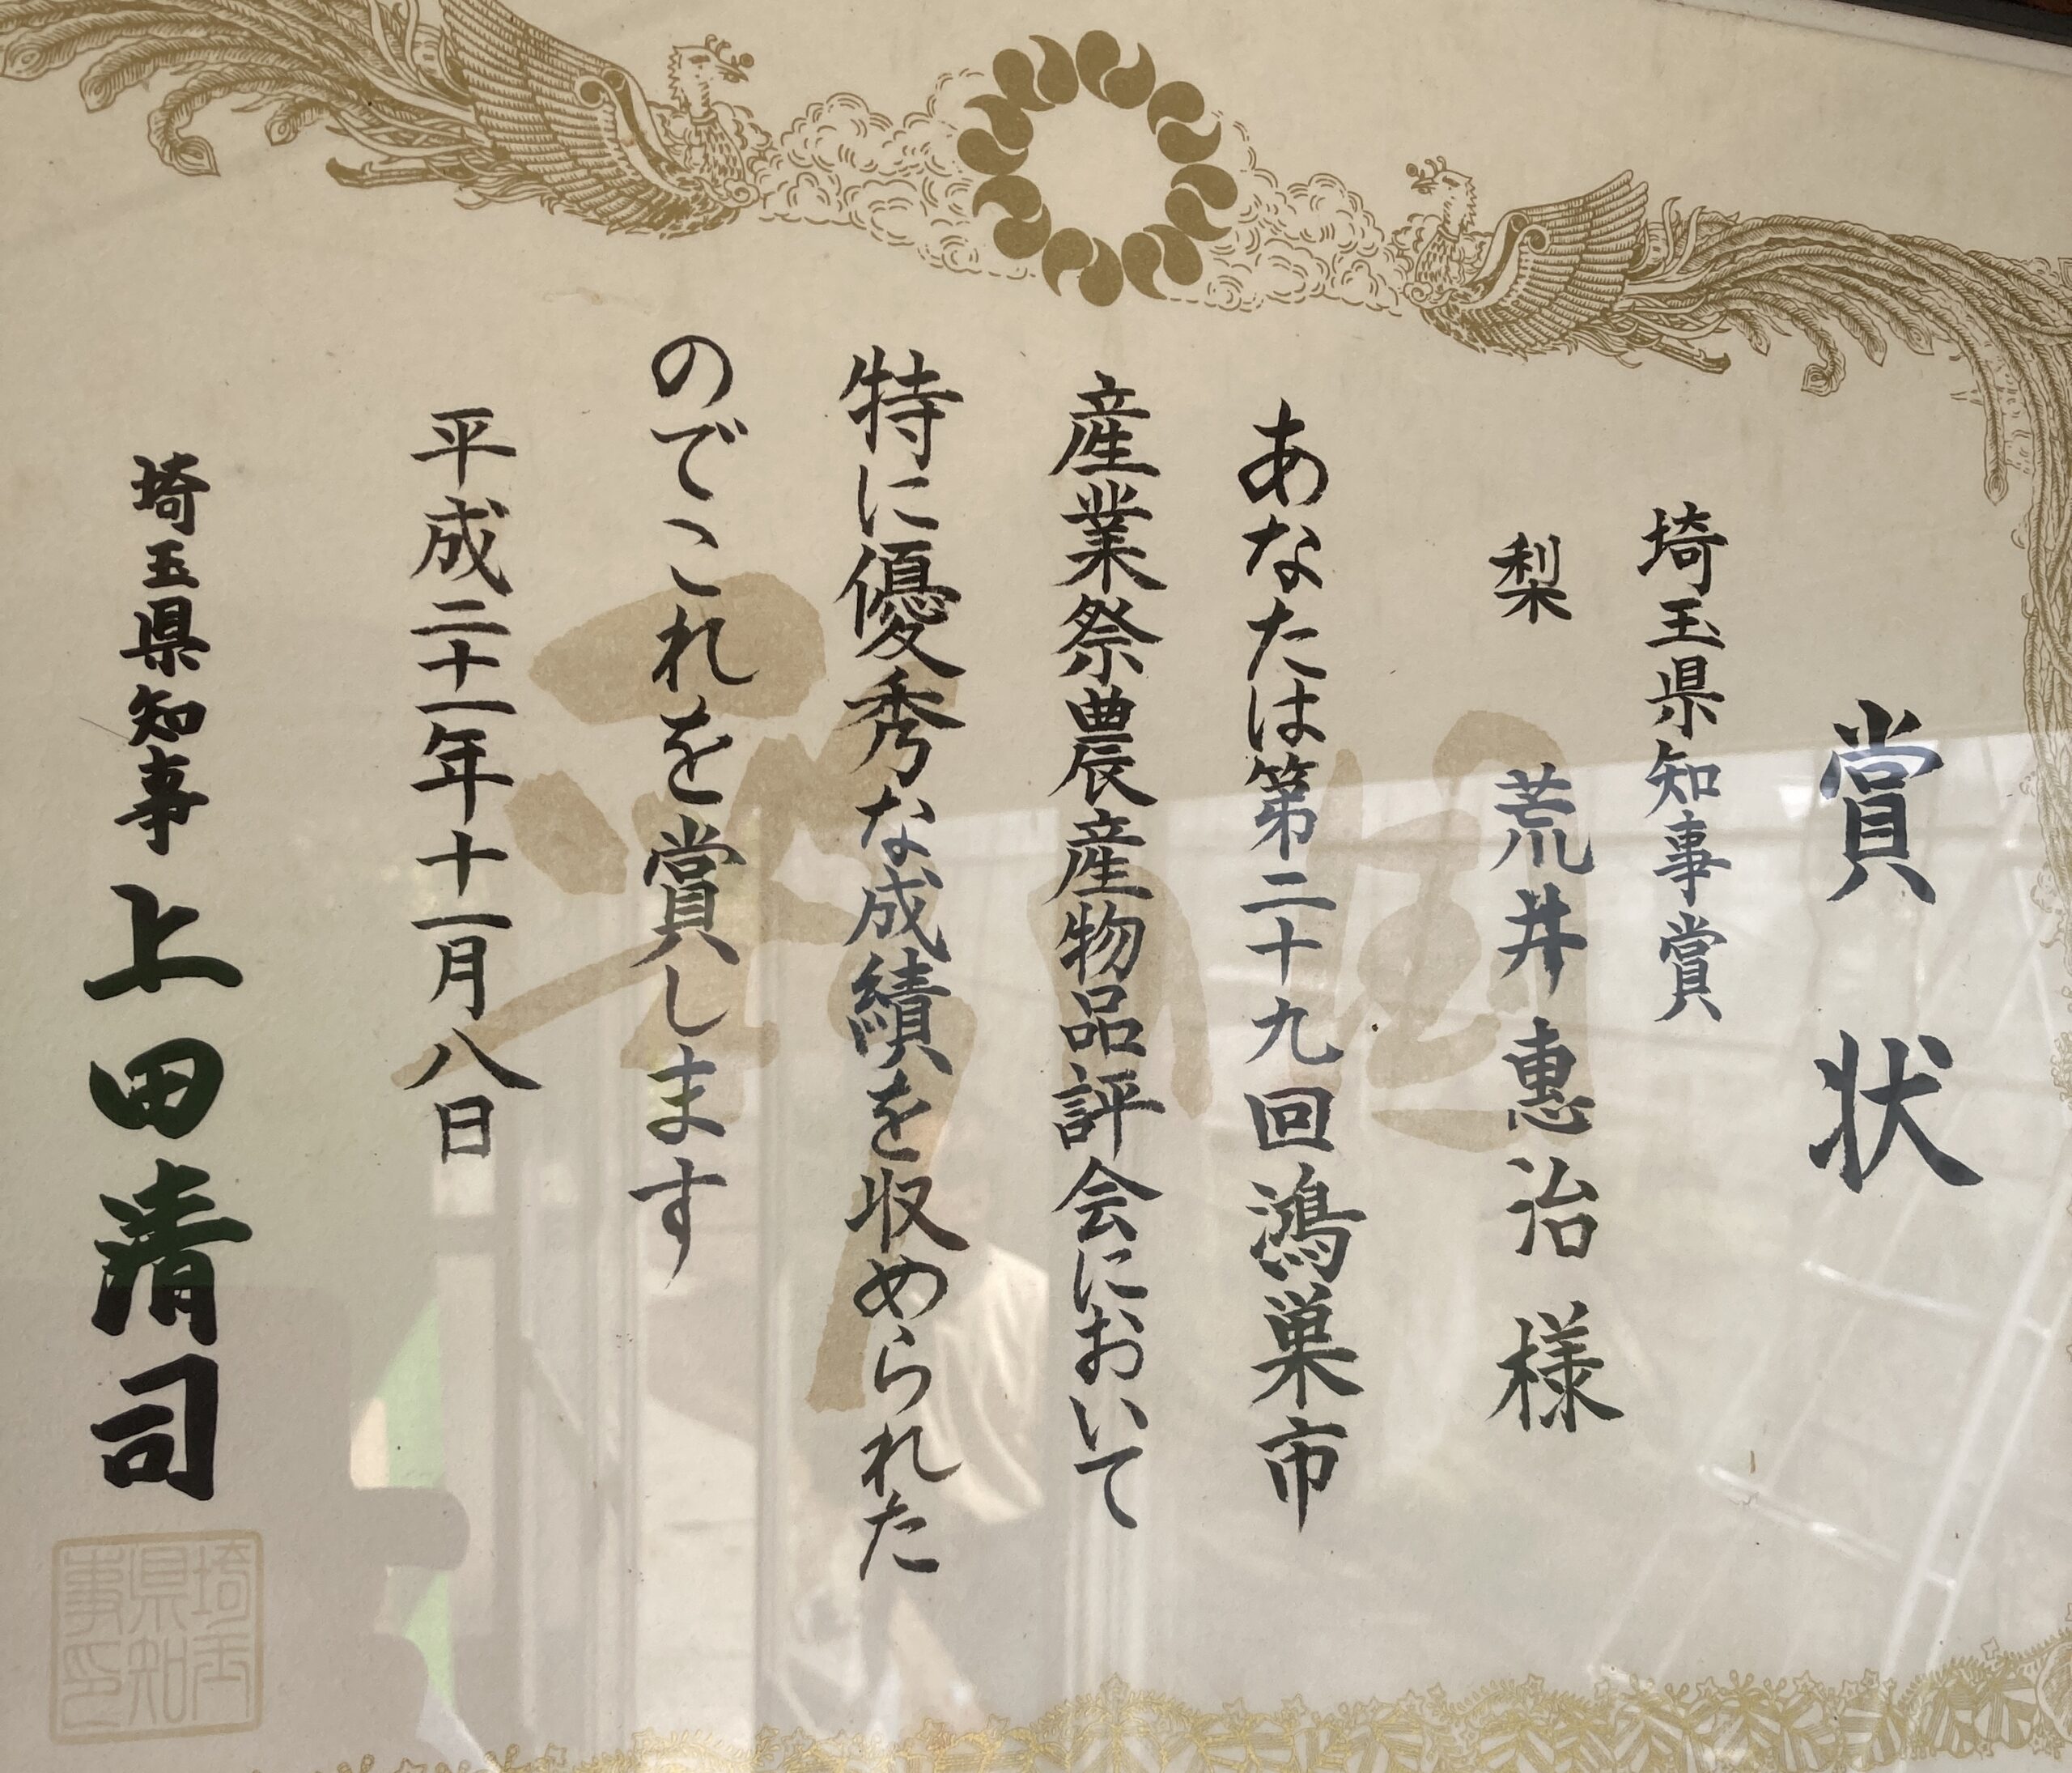 賞状
埼玉県知事賞
梨 荒井惠治様
あなたは第二十九回鴻巣市
産業祭農産物品評会において
特に優秀な成績を収められた
のでこれを賞します
平成二十一年十一月八日
埼玉県知事 上田清司
埼玉
県知
事印